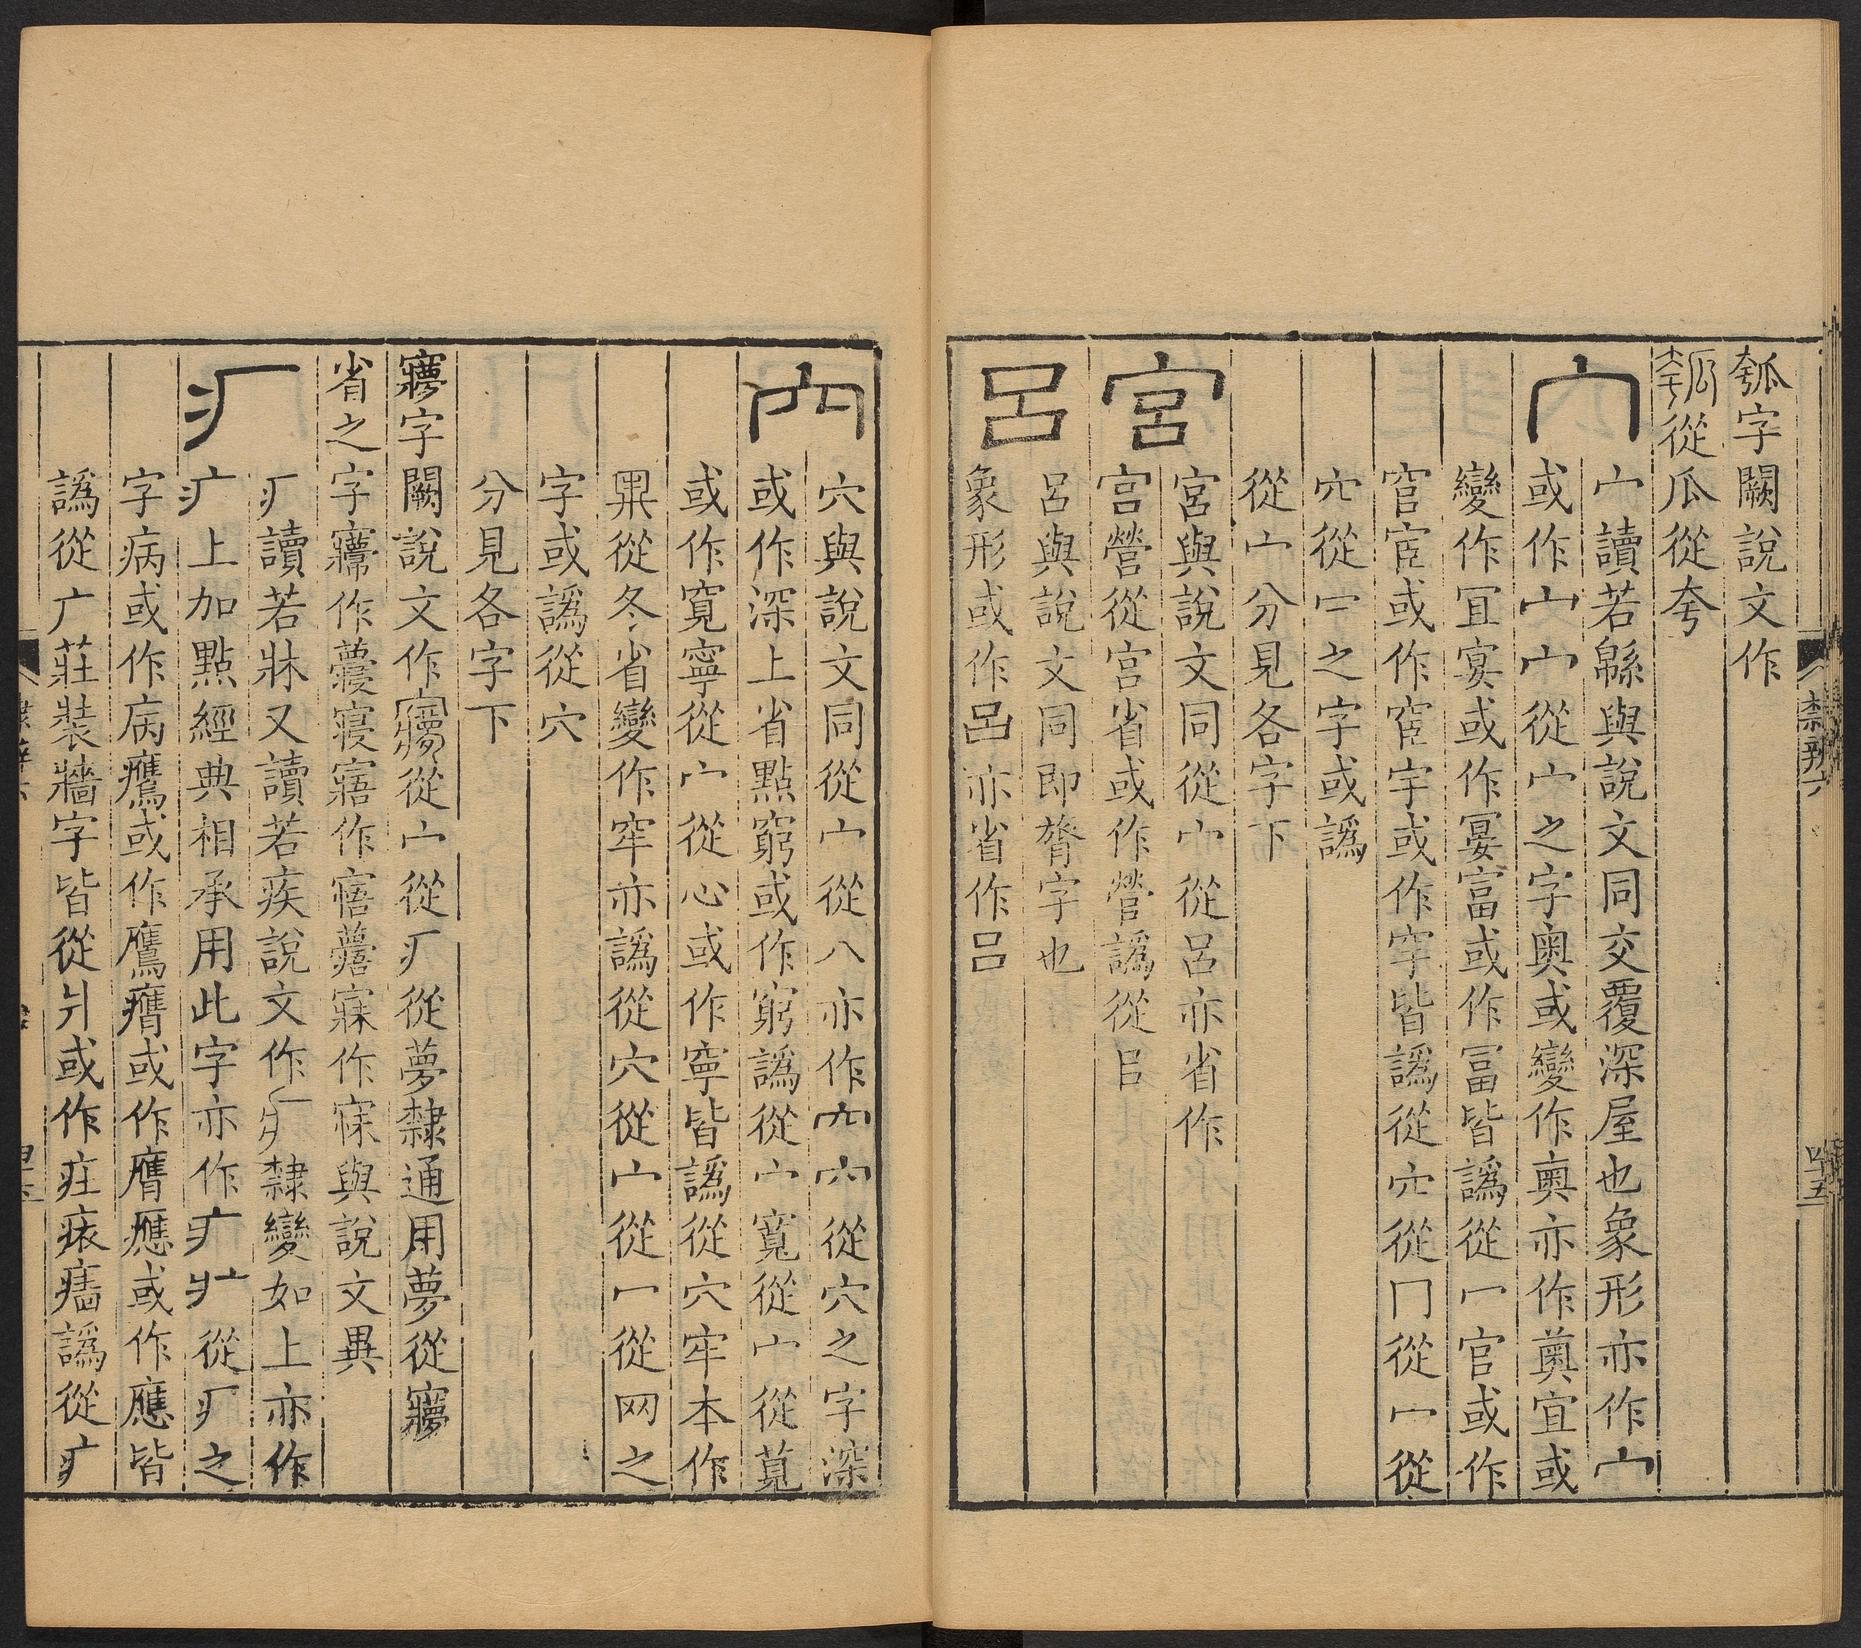 瓠字闕說文作
瓠從瓜從夸
宀
宀讀若緜與說文同交覆深屋也象形亦作宀
或作宀宀從宀之字奥或變作奧亦作薁宜或
變作冝宴或作宴富或作冨皆譌從冖官或作
官宦或作宦宇或作穻皆譌從穴從冂從冖從
穴從宀之字或譌
從宀分見各字下
宮
宮與說文同從宀從呂亦省作
宫營從宫省或作營譌從㠯
呂
呂與說文同即膂字也
象形或作吕亦省作吕
穴
穴與說文同從宀從八亦作穴穴從穴之字深
或作深上省點窮或作窮譌從宀寬從宀從萈
或作寛寧從宀從心或作寧皆譌從穴牢本作
從冬省變作牢亦譌從穴從宀從冖從网之
字或譌從穴
分見各字下
㝱字闕說文作㝱從宀從疒從夢隸通用夢從㝱
省之字寱作寢寤作寤寐作寐與說文異
疒
疒讀若牀又讀若疾說文作疒隸變如上亦作
疒上加點經典相承用此字亦作疒疒從疒之
字病或作病鷹或作鷹膺或作膺應或作應皆
譌從广莊裝牆字皆從爿或作痝牆譌從疒
隸辨六
四十五